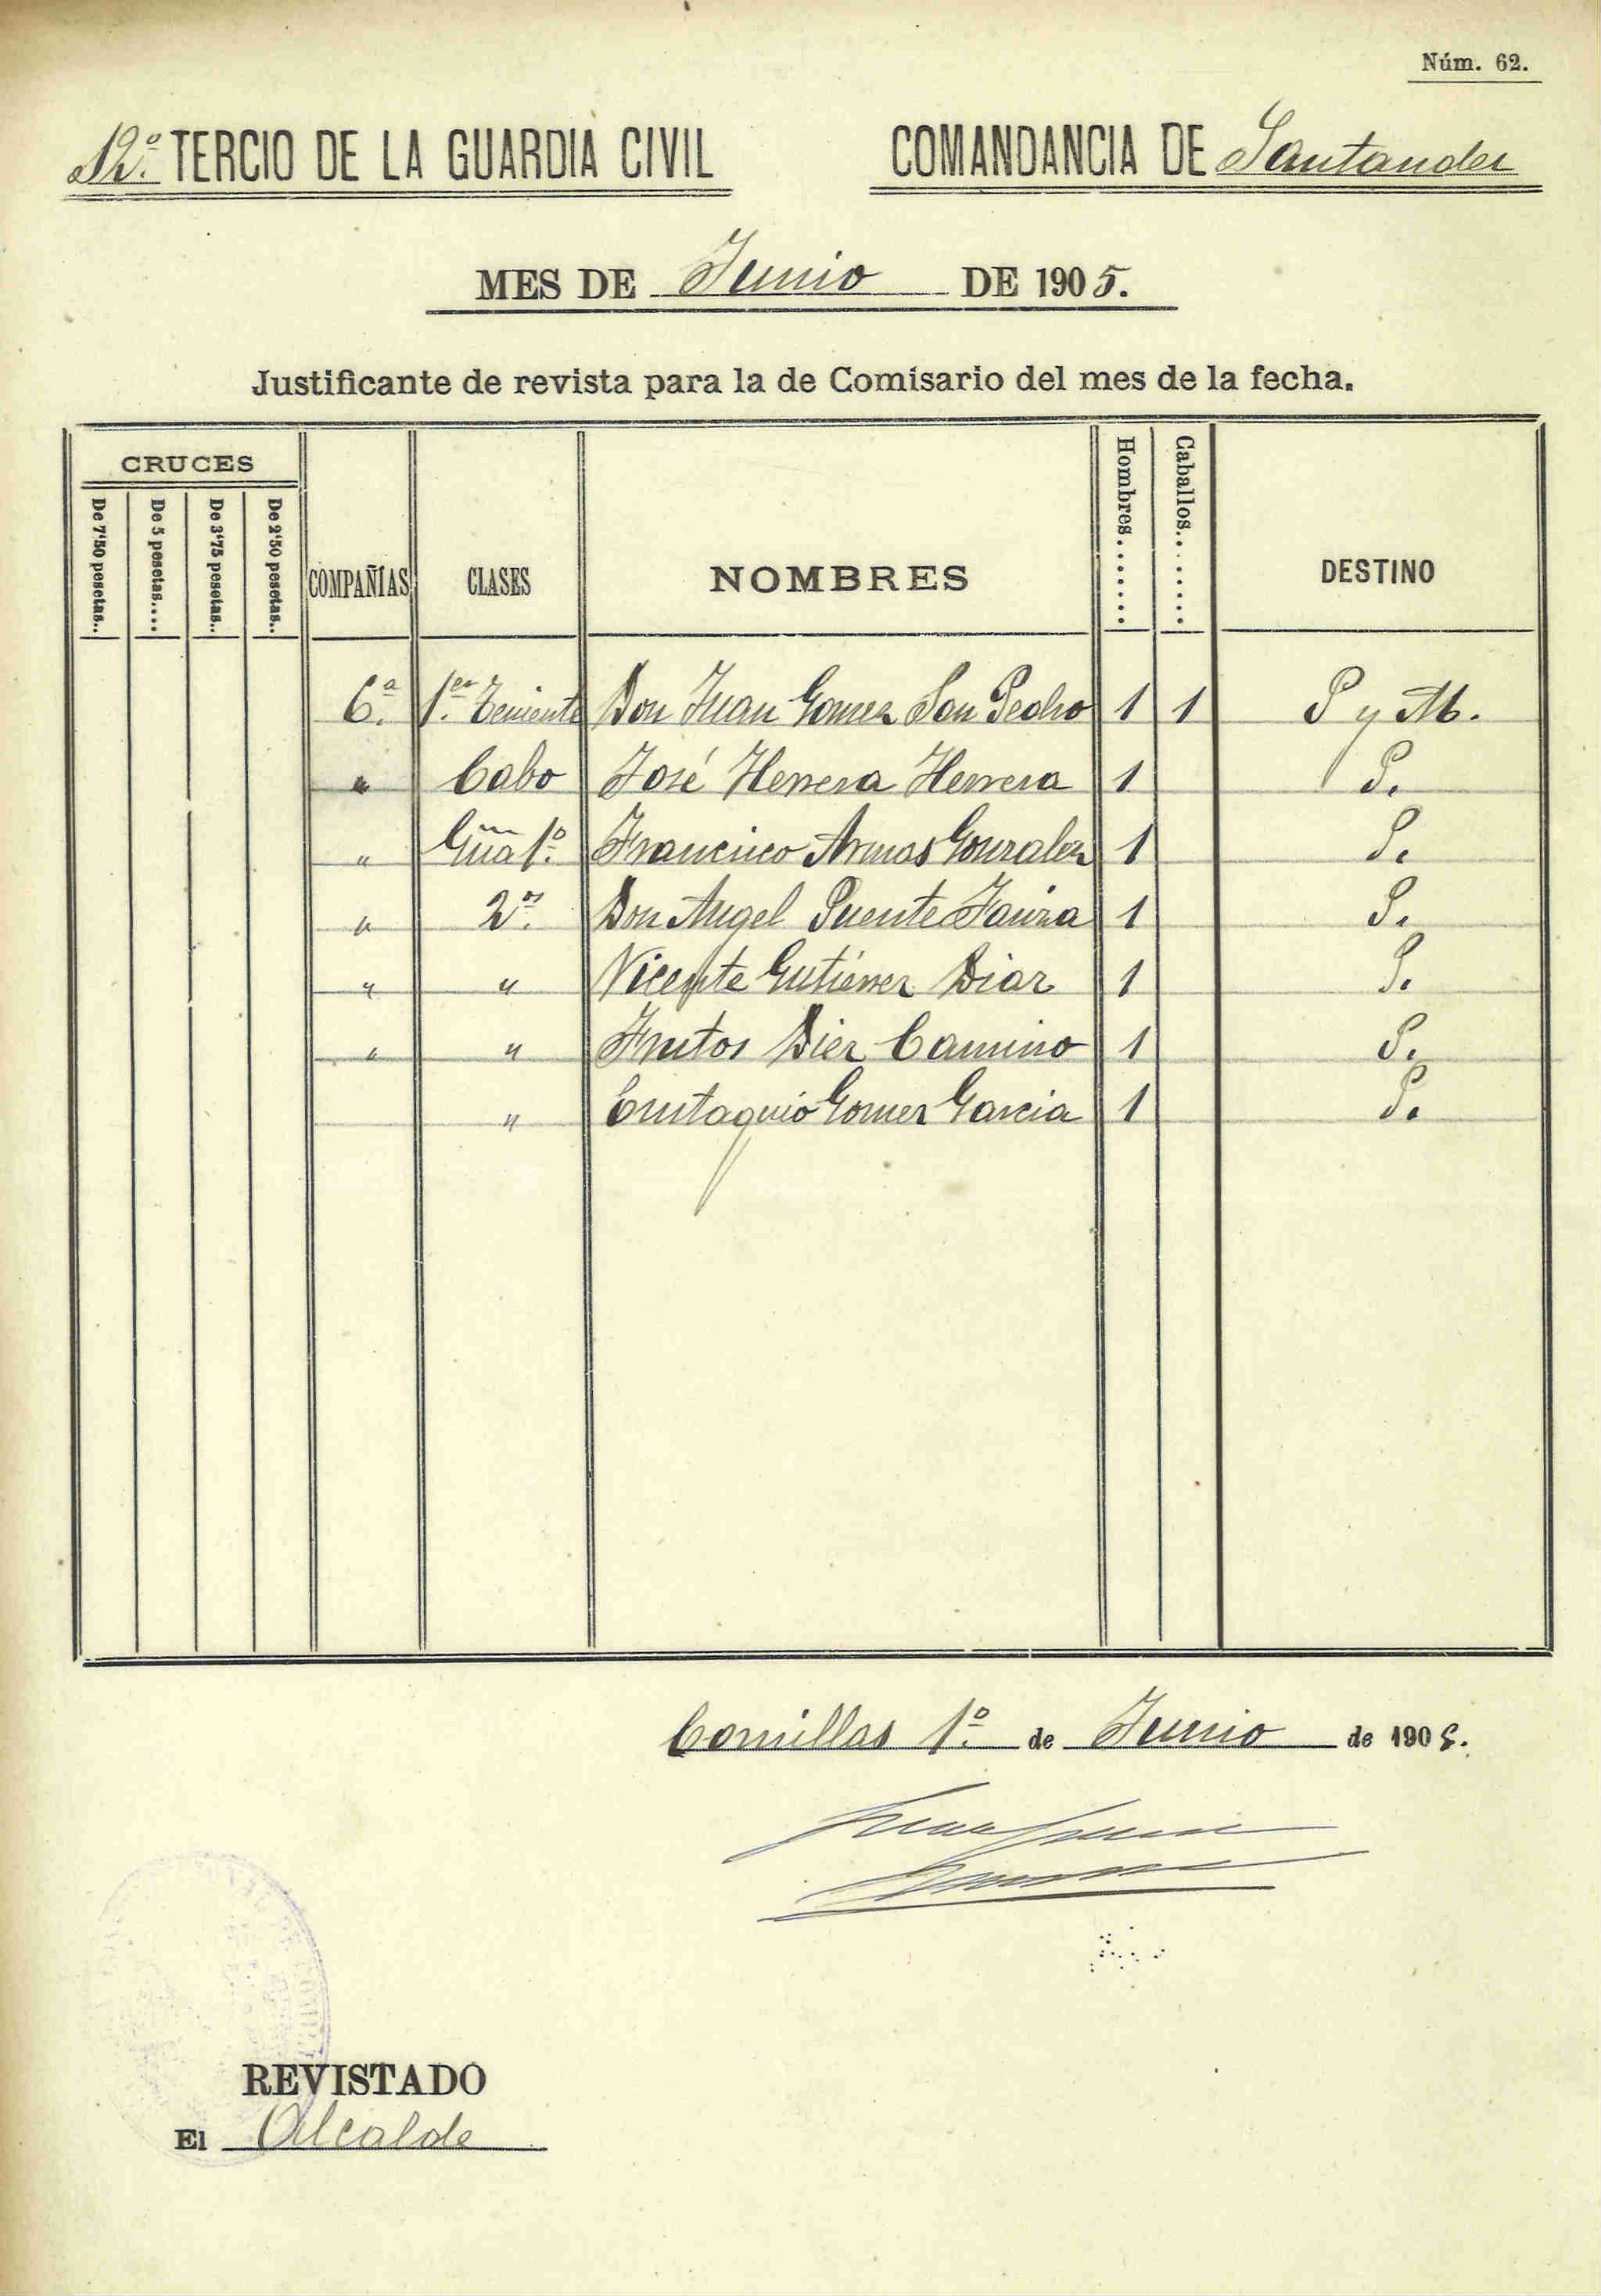 Núm. 62.
12.º TERCIO DE LA GUARDIA CIVIL COMANDANCIA DE Santander
MES DE Junio DE 1905.
Justificante de revista para la de Comisario del mes de la fecha.
CRUCES
De 7'50 pesetas.. De 5 pesetas.... De 3'75 pesetas.. De 2'50 pesetas.. COMPAÑIAS CLASES NOMBRES Hombres....... Caballos........ DESTINO
6.ª 1.er Teniente Don Juan Gomez San Pedro 1 1 P y M.
" Cabo José Herrera Herrera 1 P.
" Gũa 1.º Francisco Armas Gonzalez 1 P.
" 2.os Don Angel Puente 1 P.
" " Vicente Gutiérrez Diaz 1 P.
" " Frutos Diez Camino 1 P.
" Eustaquio Gomez Garcia 1 P.
Comillas 1.º de Junio de 1905.
REVISTADO
El Alcalde